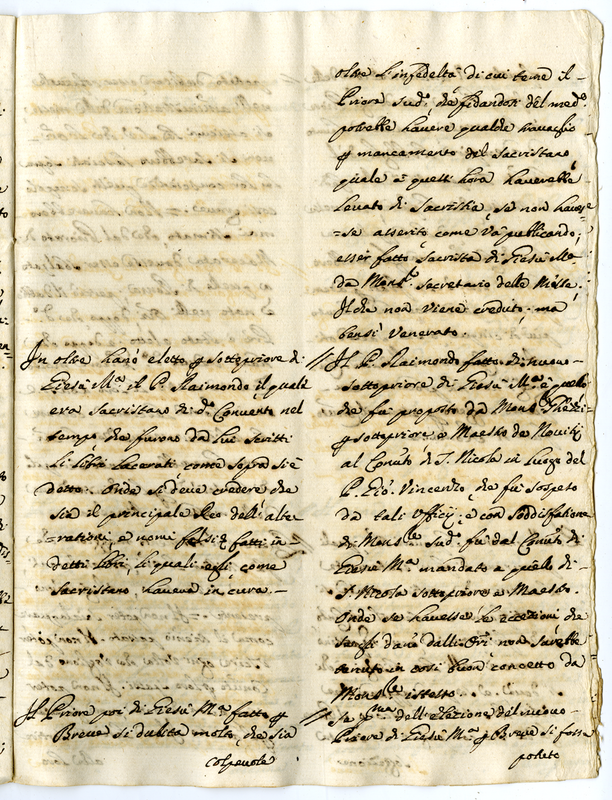 In oltre hano eletto p sottopriore di
Giesù Mª il P. Raimondo il quale
era Sacristano di dº Convento nel
tempo che furono da lui scritti
li libri lacerati come sopra si è
detto. Onde si deve credere che
sia il principale Reo dell' alte
=rationi, e nomi falsi fatti in
detti libri, li quali egli come
Sacristano haveva in cura.-
Il Priore poi di Giesù Mª fatto p
Breve si dubita molto, che sia
colpevole
oltre l'infedeltà di cui teme il
Priore sudº, che fidandosi del medº
potrebbe havere qualche travaglio
p mancamento del Sacristano
quale à quest' hora haverebbe
levato di Sacristia, se non havese
=se asserito come và publicando,
esser fatto Sacrista di Giesù Mª
da Monsre Secretario delle Messe.
Il che non viene creduto, mà
bensì venerato.
// Il P. Raimondo fatto di nuovo
sottopriore di Giesù Mª è quello
che fù proposto da Mons
p sottopriore e Maestro de Novitij
al Convto di S. Nicola in luogo del
P. Gio. Vincenzo, che fù sospeso
da tali officij, e con sodisfatione
di Monsre sudº fù dal Convto di
Giesù Mª mandato a quello di
S. Nicola sottopriore e Maestro.
Onde se havesse le eccezioni che
date dalli non sarebbe
tenuto in così buon concetto da
Monsre istesso.
// Se pma dell' elezione del nuovo
Priore di Giesù Mª p Breve si fosse
potuto